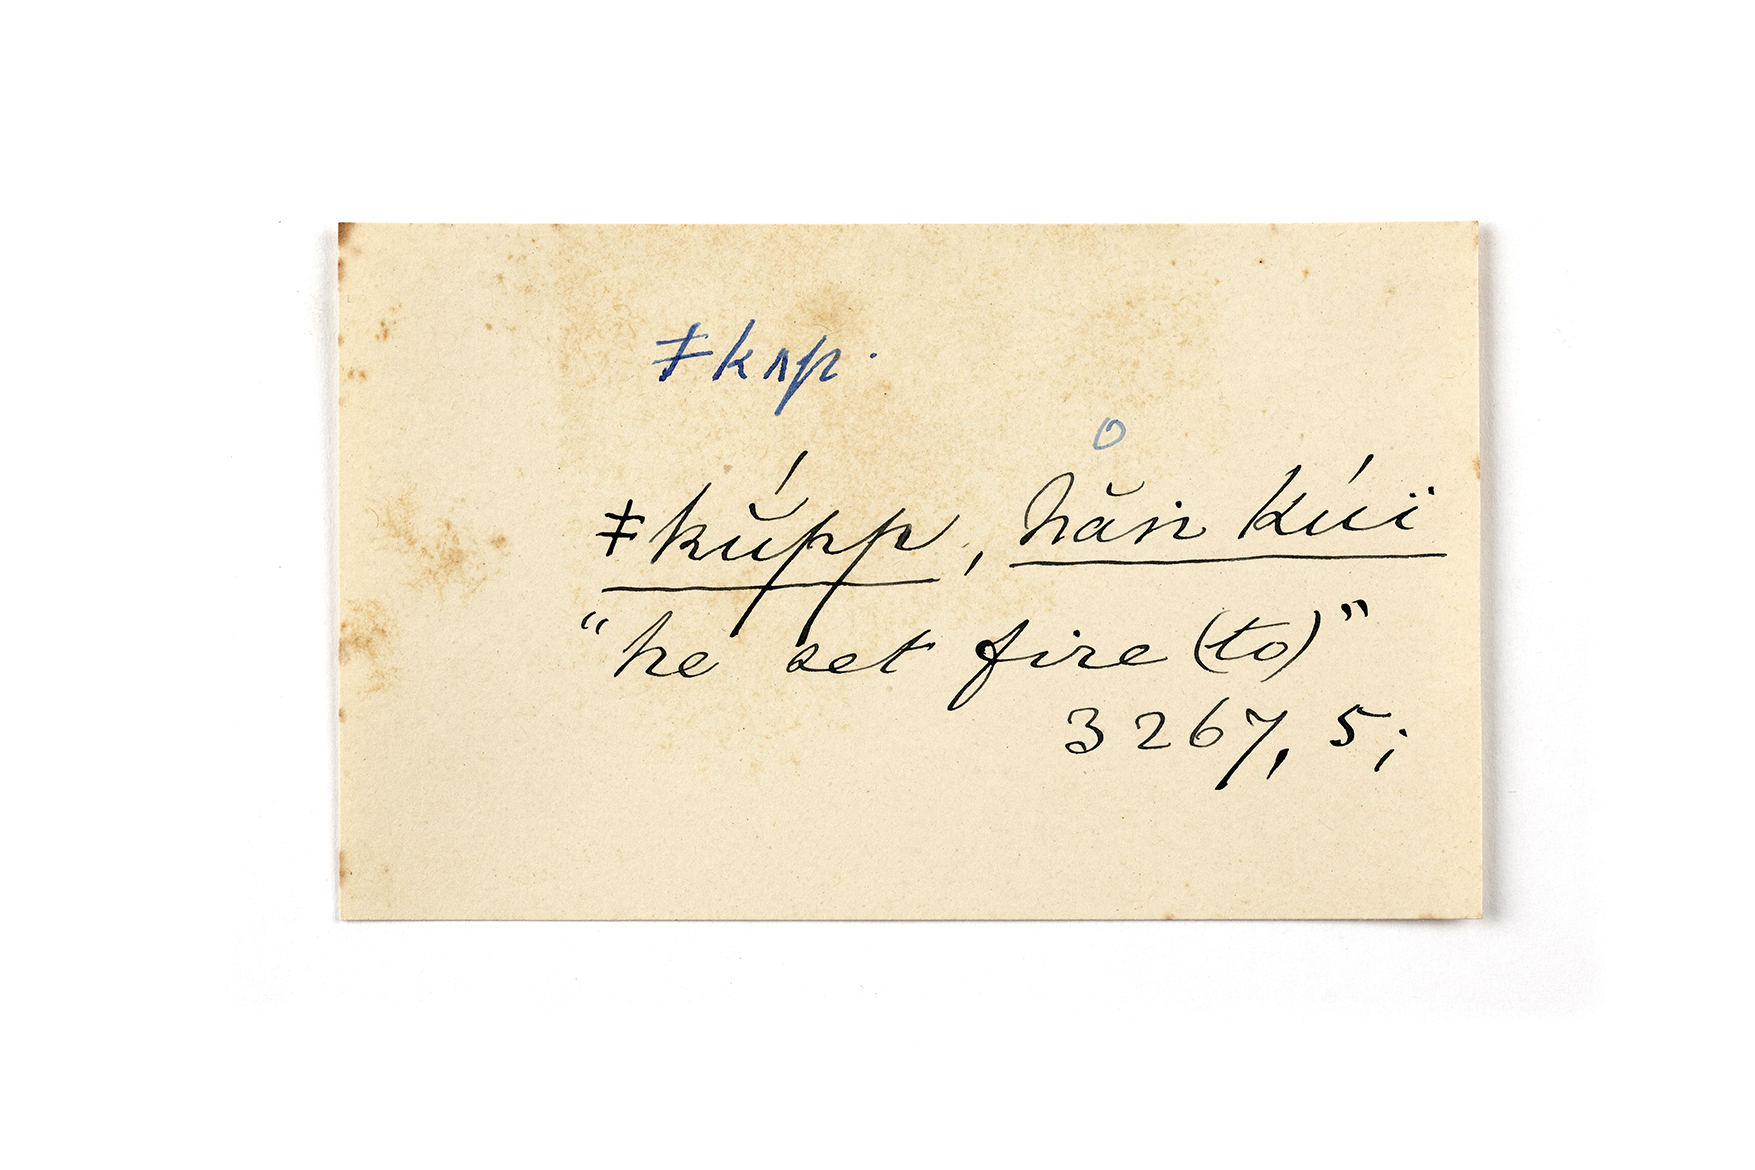 ǂkʌp.
o
ǂkŭ́pp, hăn kúï
“he set fire (to)”
3267, 5;